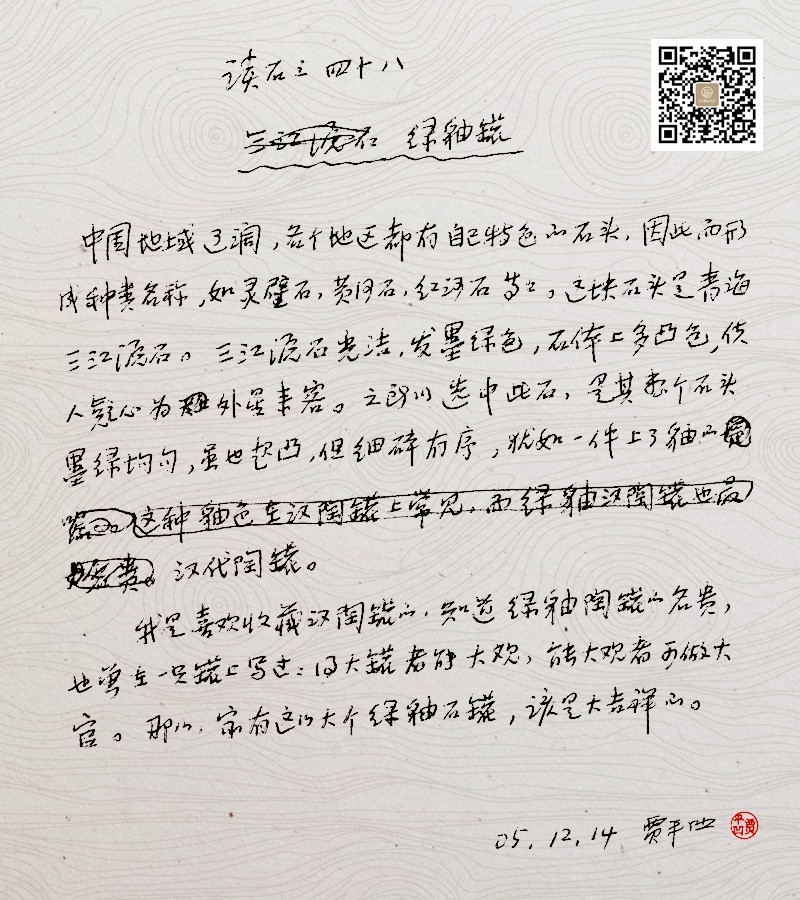 读石之四十八
三江源石 绿釉罐
中国地域辽阔,各个地区都有自己特色的石头,因此而形
成种类名称,如灵璧石,黄河石,红河石等等,这块石头是青海
三江源石。三江源石光洁,发墨绿色,石体上多凸包,使
人疑心为外星来客。之所以选中此石,是其整个石头
墨绿均匀,虽也起凸,但细碎有序,犹如一件上了釉的
这种釉色在汉陶罐上常见,而绿釉汉陶罐也最
名贵。汉代陶罐。
我是喜欢收藏汉陶罐的,知道绿釉陶罐的名贵,
也曾在一只罐上写过:得大罐者能大观,能大观者可做大
官。那么,家有这么大个绿釉石罐,该是大吉祥的。
05.12.14 贾平凹
贾平凹